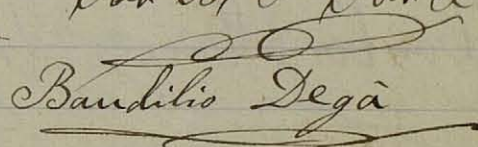 Baudilio Degà